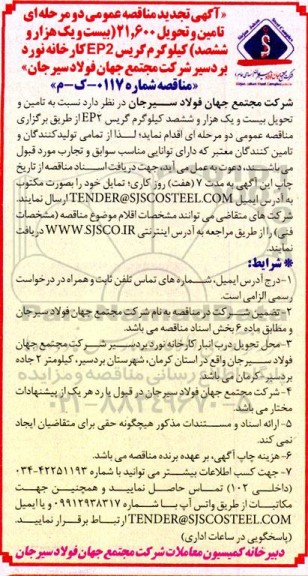 «آگهی تجدید مناقصه عمومی دو مرحله ای
تامین و تحویل ۲۱,۶۰۰ (بیست و یک هزار و
ششصد) کیلوگرم گریس EP2 کارخانه نورد
بردسیر شرکت مجتمع جهان فولاد سیرجان»
«مناقصه شماره ۰۱۱۷-ک-م»
شرکت مجتمع جهان فولاد سیرجان در نظر دارد نسبت به تامین و
تحویل بیست و یک هزار و ششصد کیلوگرم گریس EP۲ از طریق برگزاری
مناقصه عمومی دو مرحله ای اقدام نماید؛ لذا از تمامی تولیدکنندگان و
تامین کنندگان معتبر که دارای توانایی مناسب سوابق و تجارب مورد قبول
می باشند، دعوت به عمل می آید جهت دریافت اسناد مناقصه از تاریخ
چاپ این آگهی به مدت ۷ (هفت) روز کاری؛ تمایل خود را بصورت مکتوب
به آدرس ایمیل TENDER@SJSCOSTEEL.COM ارسال نمایند.
شرکت های متقاضی می توانند مشخصات اقلام موضوع مناقصه (مشخصات
فنی) را از طریق مراجعه به آدرس اینترنتی WWW.SJSCO.IR دریافت
نمایند.
* شرایط:
۱-درج آدرس ایمیل، شماره های تماس تلفن ثابت و همراه در درخواست
رسمی الزامی است.
۲-تضمین شرکت در مناقصه به نام شرکت مجتمع جهان فولاد سیرجان
و مطابق ماده ۶ بخش اسناد مناقصه می باشد.
۳-محل تحویل درب انبار کارخانه نورد بردسیر شرکت مجتمع جهان
فولاد سیرجان واقع در استان کرمان، شهرستان بردسیر، کیلومتر ۲ جاده
بردسیر کرمان می باشد.
۴-شرکت مجتمع جهان فولاد سیرجان در قبول یا رد هر یک از پیشنهادات
مختار می باشد.
۵-ارائه اسناد و مستندات مذکور هیچگونه حقی برای متقاضیان ایجاد
نمی کند.
۶- هزینه چاپ آگهی، بر عهده برنده مناقصه می باشد.
۷- جهت کسب اطلاعات بیشتر می توانید با شماره ۴۲۲۵۱۱۹۳-۰۳۴
(داخلی ۱۰۲) تماس حاصل نمایید و همچنین جهت
مکاتبات از طریق واتس آپ با شماره ۰۹۹۱۲۹۳۸۳۱۷ و یا ایمیل
TENDER@SJSCOSTEEL.COM ارتباط برقرار نمایید.
(پاسخگویی در ساعات اداری)
دبیرخانه کمیسیون معاملات شرکت مجتمع جهان فولاد سیرجان